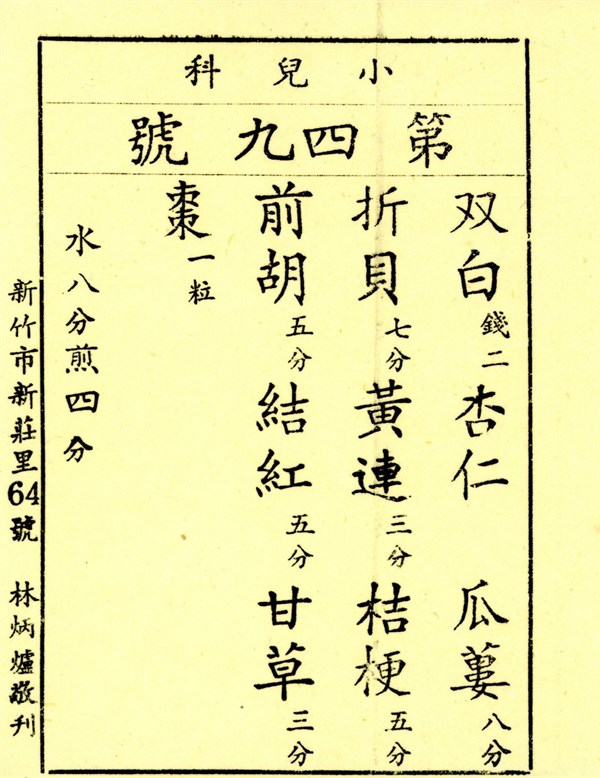 小兒科
第四九號
双白錢二 杏仁 瓜蔞八分
折貝七分 黃連三分 桔梗五分
前胡五分 結紅五分 甘草三分
棗一粒
水八分煎四分
新竹市新莊里64號 林炳爐敬刊